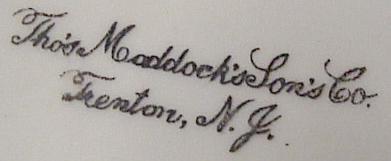 Tho's Maddock's Son's Co.
Trenton, N.J.